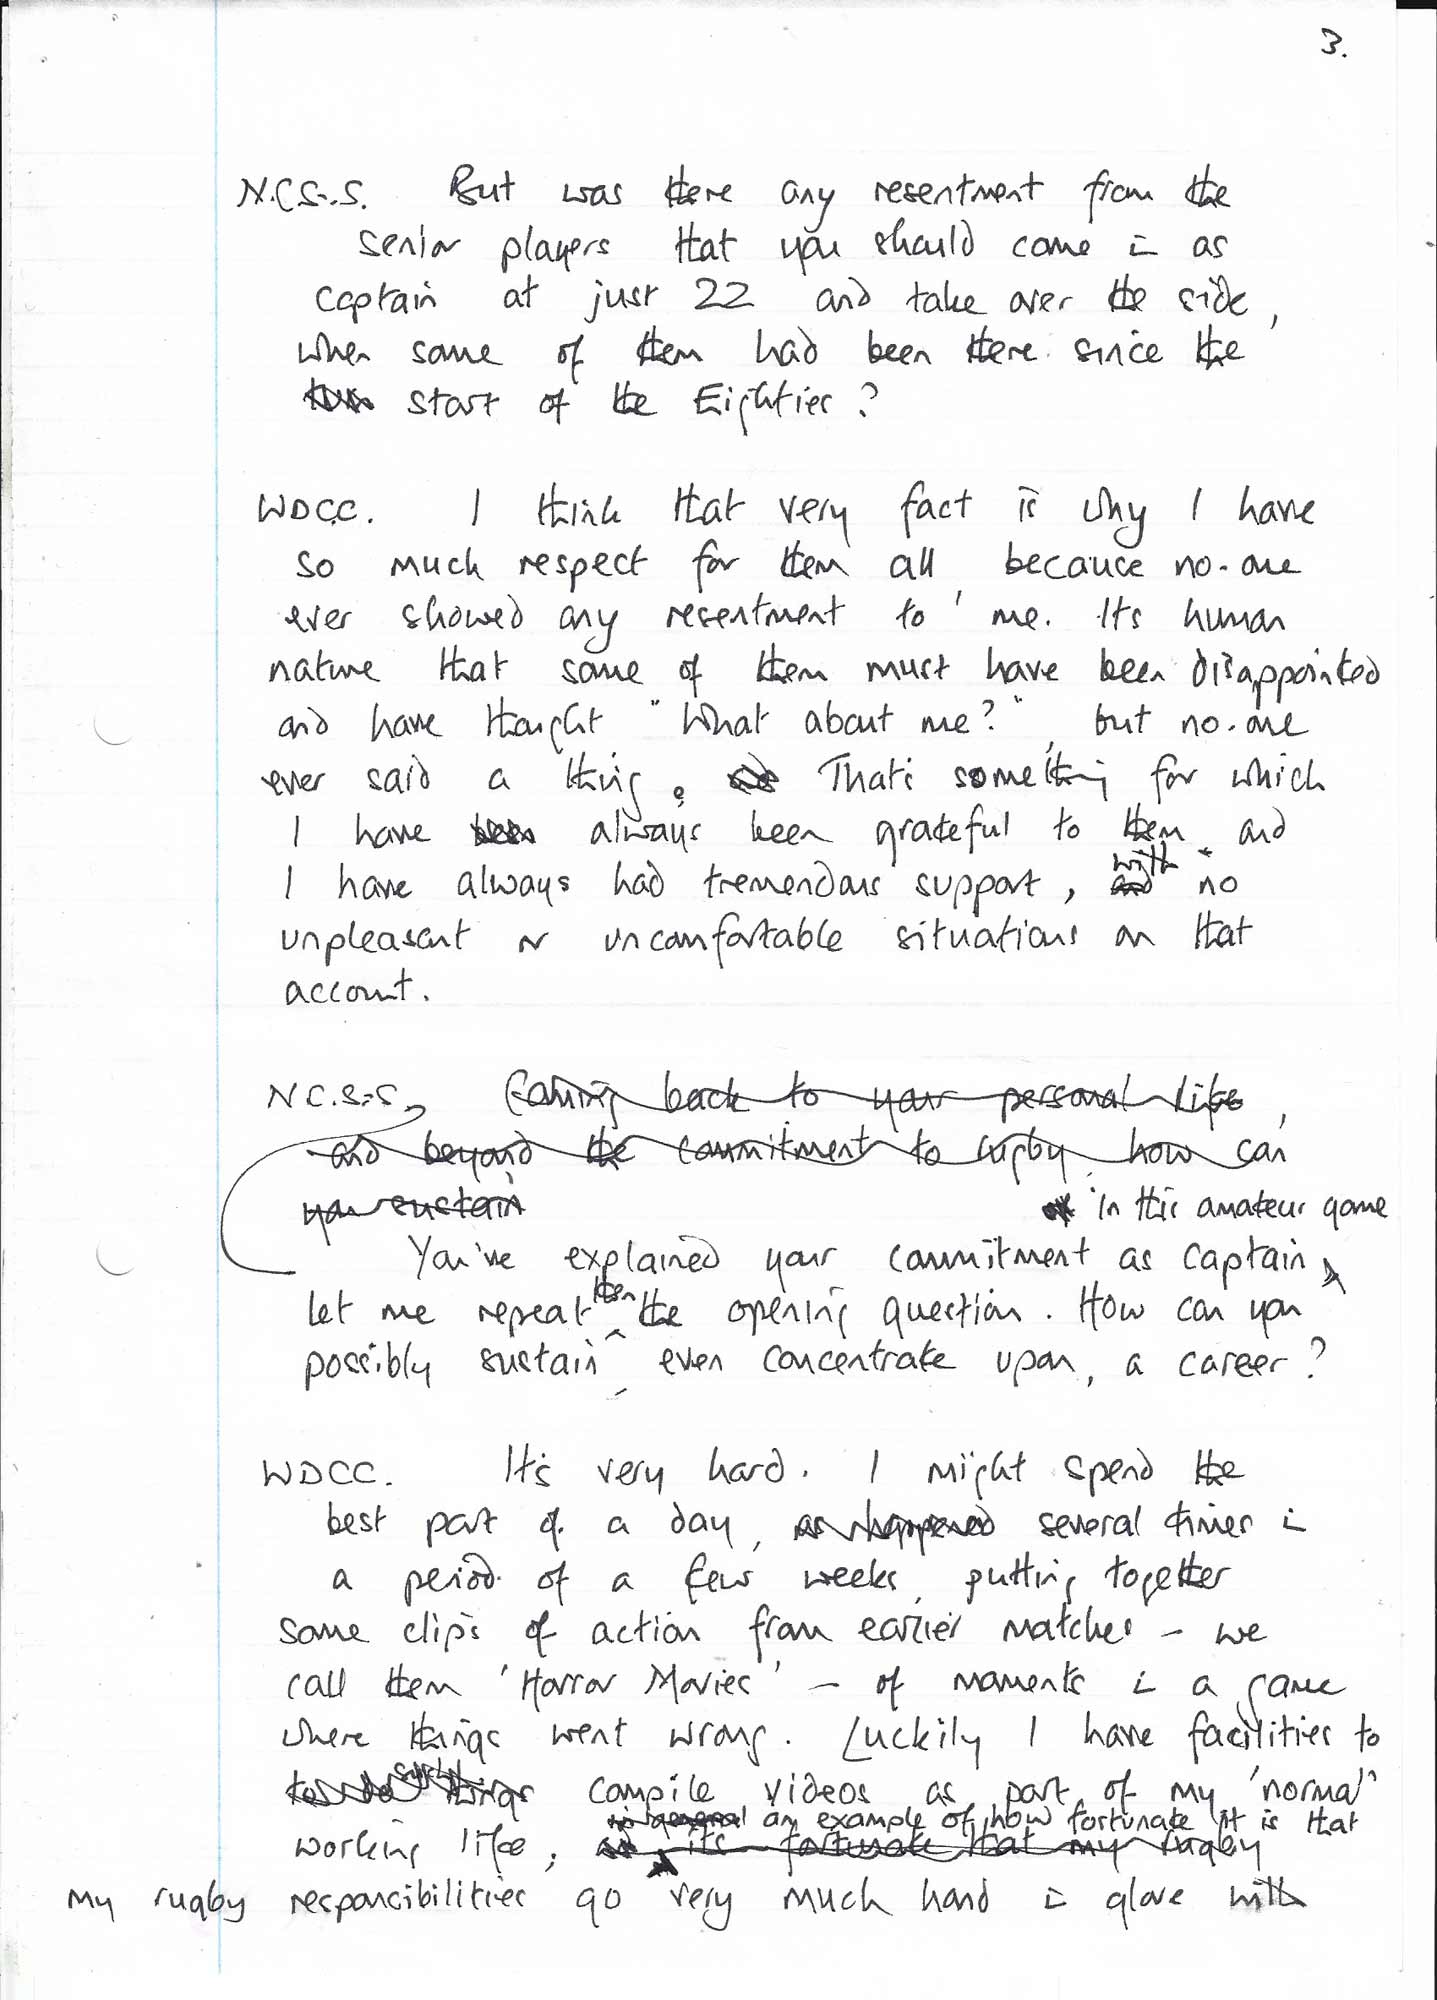 3.
N.C.S-S. But was there any resentment from the
senior players that you should come in as
captain at just 22 and take over the side,
when some of them had been there since the
start of the Eighties?
WDCC. I think that very fact is why I have
so much respect for them all, because no-one
ever showed any resentment to me. Its human
nature that some of them must have been disappointed
and have thought "What about me?", but no-one
ever said a thing. That's something for which
I have been always been grateful to them and
with
I have always had tremendous support, and no
unpleasant or uncomfortable situations on that
account.
N.C.S-S, Coming back to your personal life,
and beyond the commitment to rugby, how can
you sustain
in this amateur game
You've explained your commitment as captain
then
let me repeat the opening question. How can you
possibly sustain, even concentrate upon, a career?
WDCC. It's very hard. I might spend the
best part of a day, as happened several times in
a period of a few weeks, putting together
some clips of action from earlier matches - we
call them 'Horror Movies' - of moments in a game
where things went wrong. Luckily I have facilities to
such
to do things compile videos as part of my 'normal'
in general an example of how fortunate it is that
working life, as its fortunate that my rugby
my rugby responsibilities go very much hand in glove with